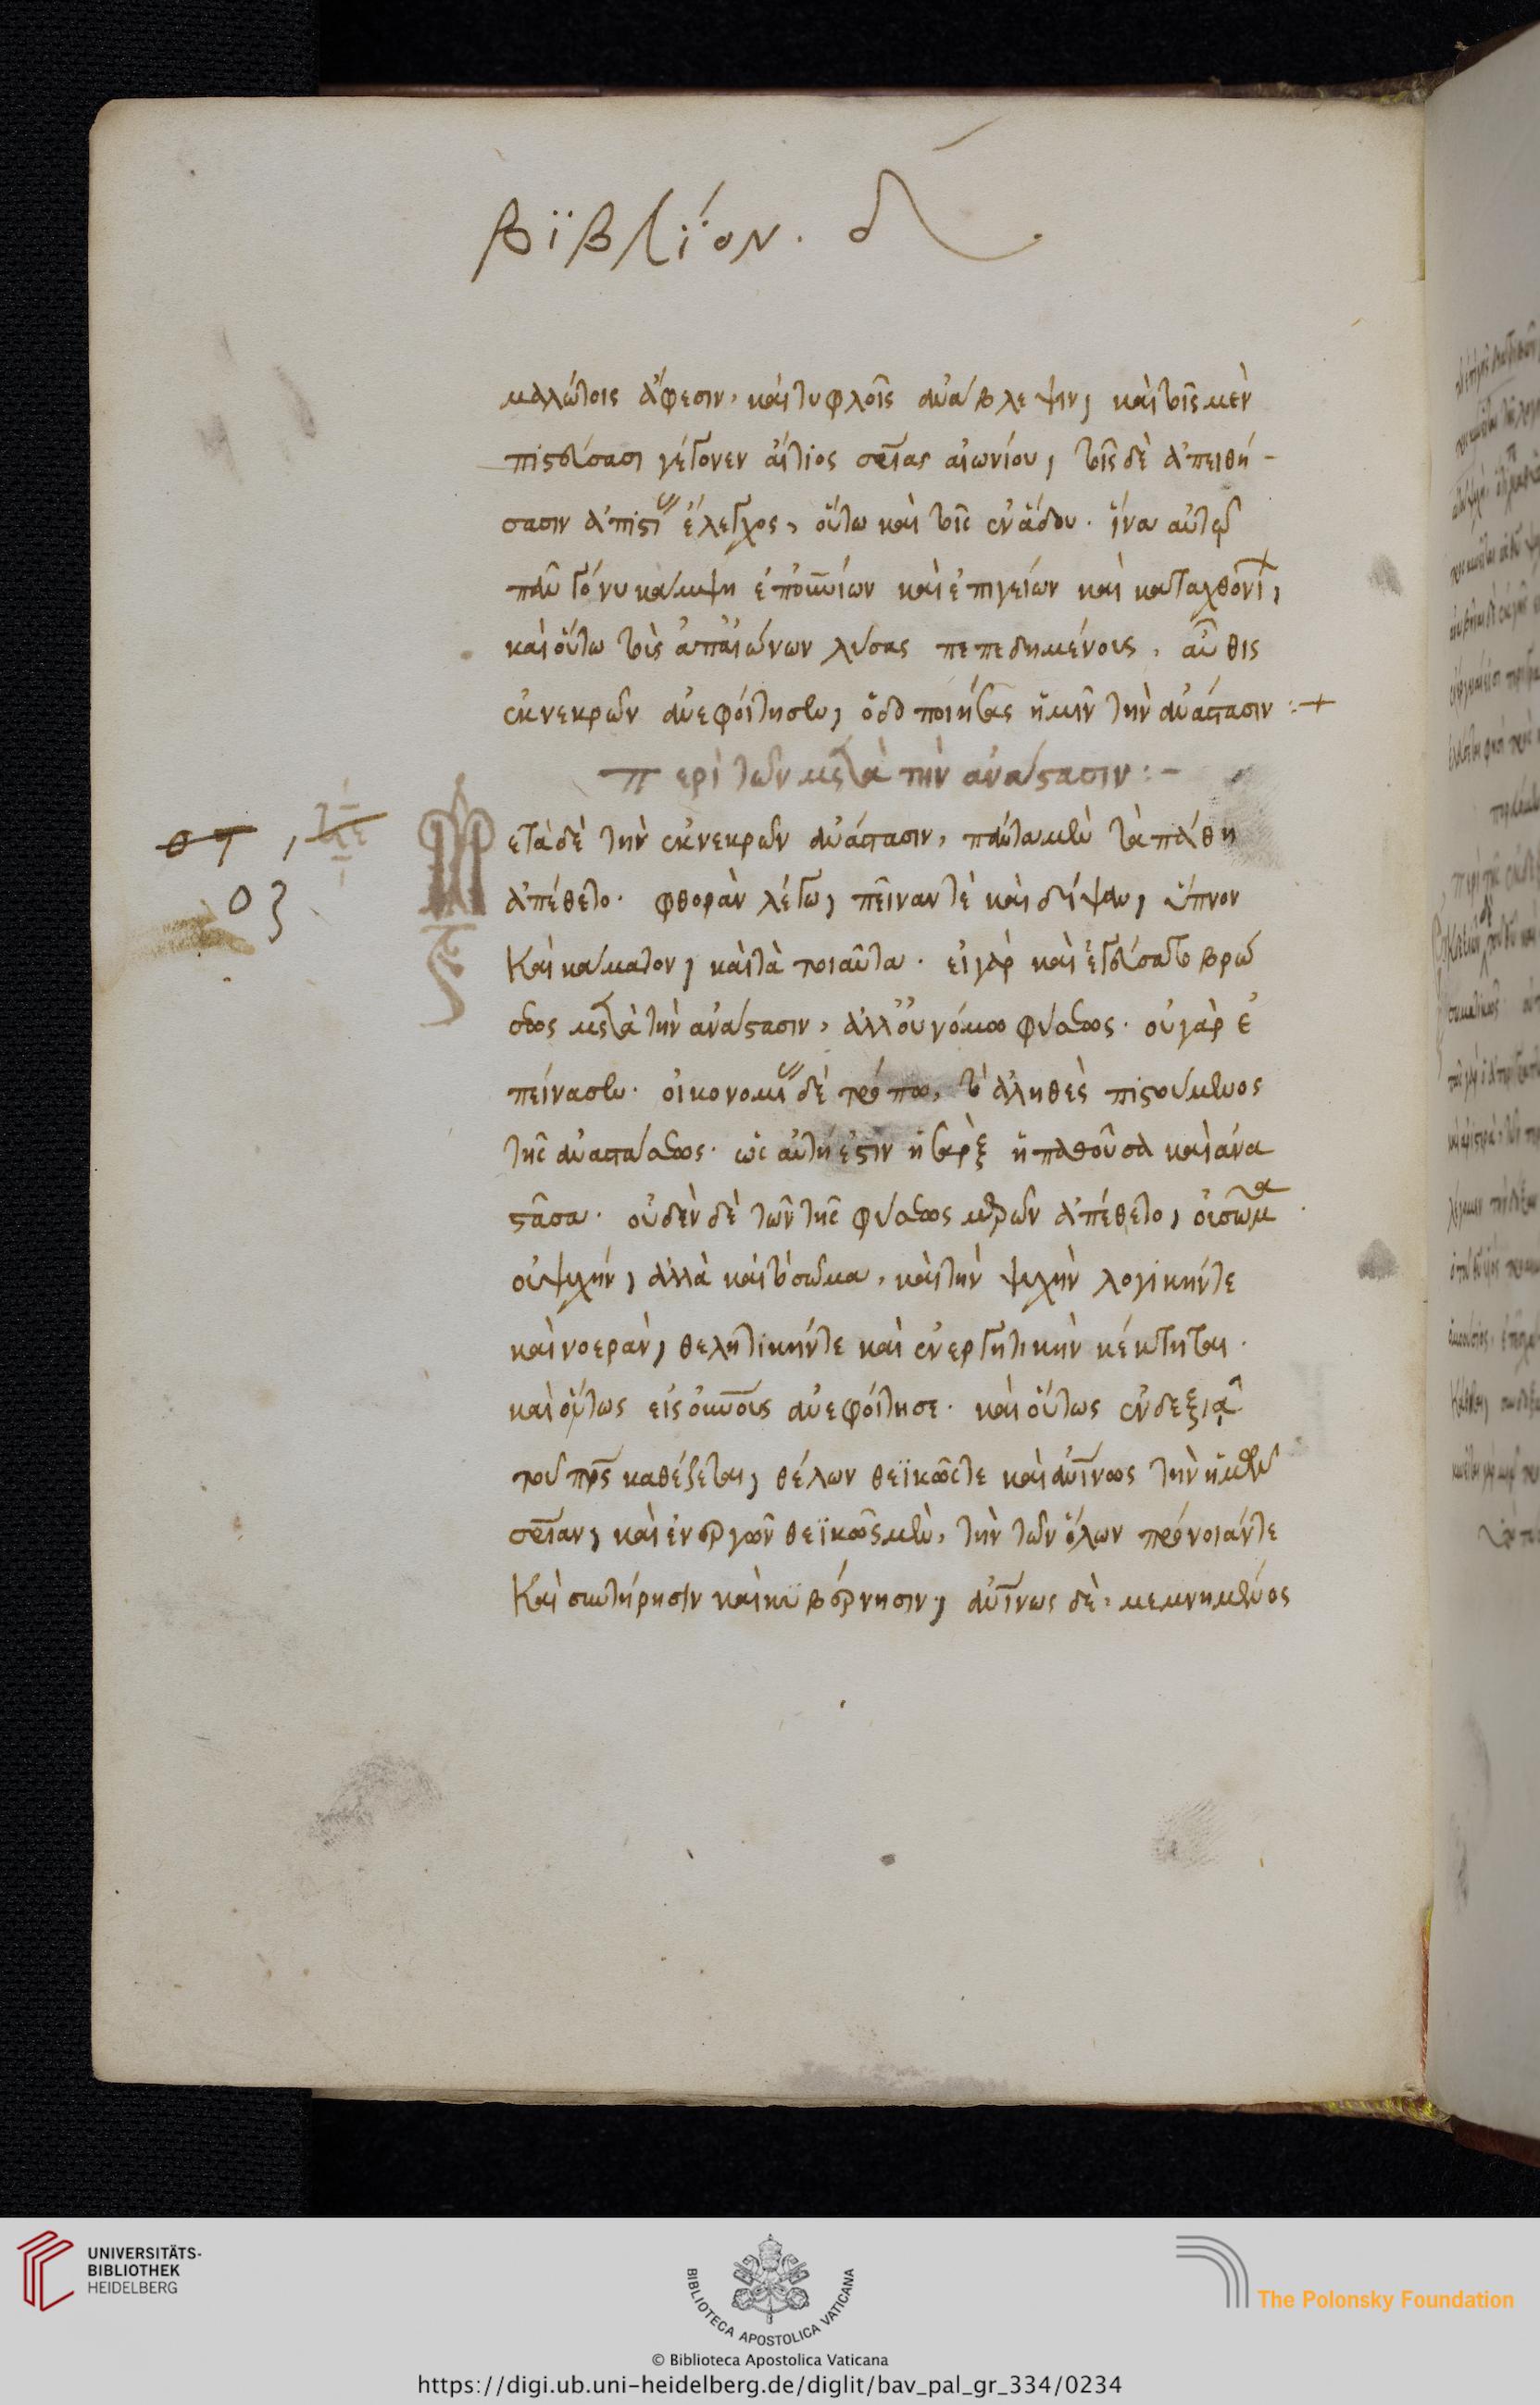 βϊβλίον. δ
μαλώτοις ἄφεσιν, καὶ τυφλοῖς ἀνάβλεψιν, καὶ τοῖς μὲν
πιστεύσασι γέγονεν αἴτιος σ̅ρ̅ίας αἰωνίου, τοῖς δὲ ἀπειθή-
σασιν ἀπιστί ἔλεγχος, οὕτω καὶ τοῖς ἐν ἅδου. ἵνα αὐτῶ
πᾶν γόνυ κάμψη ἐπουνίων καὶ ἐπιγείων καὶ καταχθονί,
καὶ οὕτω τοὺς ἀπαιώνων λύσας πεπεδημένους, αὖθις
ἐκνεκρῶν ἀνεφοίτησεν, ὁδοποιήσας ἡμῖν τὴν ἀνάστασιν :+
περὶ τῶν μετὰ τὴν ἀνάστασιν :-
Μετὰ δὲ τὴν ἐκνεκρῶν ἀνάστασιν, πάντα μὲν τὰ πάθη
ἀπέθετο. φθορὰν λέγω, πεῖναν τὲ καὶ δίψαν, ὕπνον
Καὶ κάματον, καὶ τὰ τοιαῦτα. εἰ γὰρ καὶ ἐγεύσατο βρώ
σεως μετὰ τὴν ἀνάστασιν, ἀλλ' οὐ νόμω φύσεως. οὐ γὰρ ἐ
πείνασεν. οἰκονομί δὲ τρόπω, τὸ ἀληθὲς πιστούμενος
τῆς ἀναστάσεως. ὡς αὐτή ἐστιν ἡ σὰρξ ἡ παθοῦσα καὶ ἀνα
στᾶσα. οὐδὲν δὲ τῶν τῆς φύσεως μερῶν ἀπέθετο, οὐ σῶμα
οὐ ψυχήν, ἀλλὰ καὶ τὸ σῶμα, καὶ τὴν ψυχὴν λογικήν τε
καὶ νοεράν, θελητικήν τε καὶ ἐνεργητικὴν κέκτηται.
καὶ οὕτως εἰς οὐνοὺς ἀνεφοίτησε. καὶ οὕτως ἐν δεξιᾷ
τοῦ πρς καθέζεται, θέλων θεϊκῶς τε καὶ ανίνως τὴν ἡμῶν
σρίαν, καὶ ἐνεργῶν θεϊκῶς μὲν, τὴν τῶν ὅλων πρόνοιάν τε
Καὶ συντήρησιν καὶ κυβέρνησιν, ανίνως δὲ, μεμνημένος
© Biblioteca Apostolica Vaticana
UNIVERSITÄTS-
BIBLIOTHEK
HEIDELBERG
BIBLIOTECA APOSTOLICA VATICANA
The Polonsky Foundation
https://digi.ub.uni-heidelberg.de/diglit/bav_pal_gr_334/0234